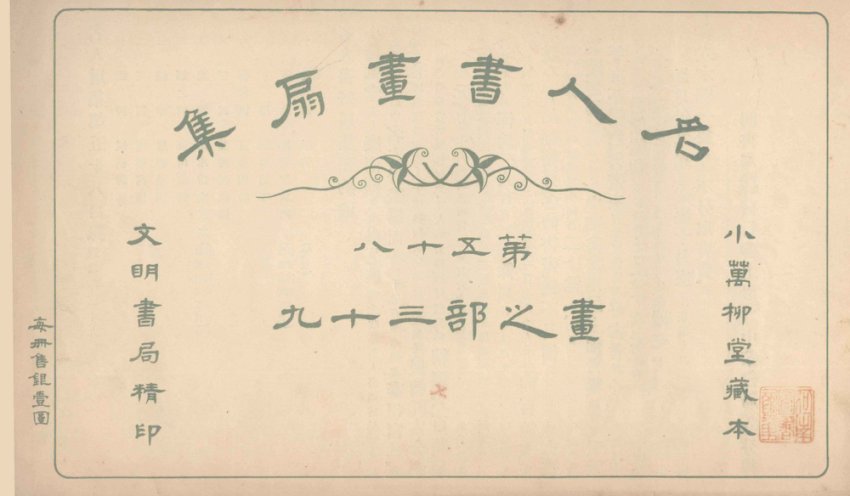 名人書畫扇集
第五十八
畫之部三十九
小萬柳堂藏本
文明書局精印
每冊售銀壹圓
七